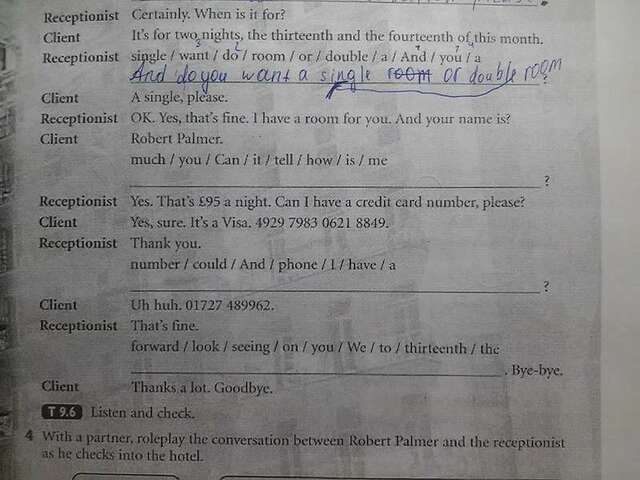 Receptionist Certainly. When is it for?
Client It's for two nights, the thirteenth and the fourteenth of this month.
Receptionist single / want / do / room / or / double / a / And / you / a
And do you want a single room or double room
Client A single, please.
Receptionist OK. Yes, that's fine. I have a room for you. And your name is?
Client Robert Palmer.
much / you / Can / it / tell / how / is / me
?
Receptionist Yes. That's £95 a night. Can I have a credit card number, please?
Client Yes, sure. It's a Visa. 4929 7983 0621 8849.
Receptionist Thank you.
number / could / And / phone / I / have / a
?
Client Uh huh. 01727 489962.
Receptionist That's fine.
forward / look / seeing / on / you / We / to / thirteenth / the
. Bye-bye.
Client Thanks a lot. Goodbye.
T 9.6 Listen and check.
4 With a partner, roleplay the conversation between Robert Palmer and the receptionist
as he checks into the hotel.